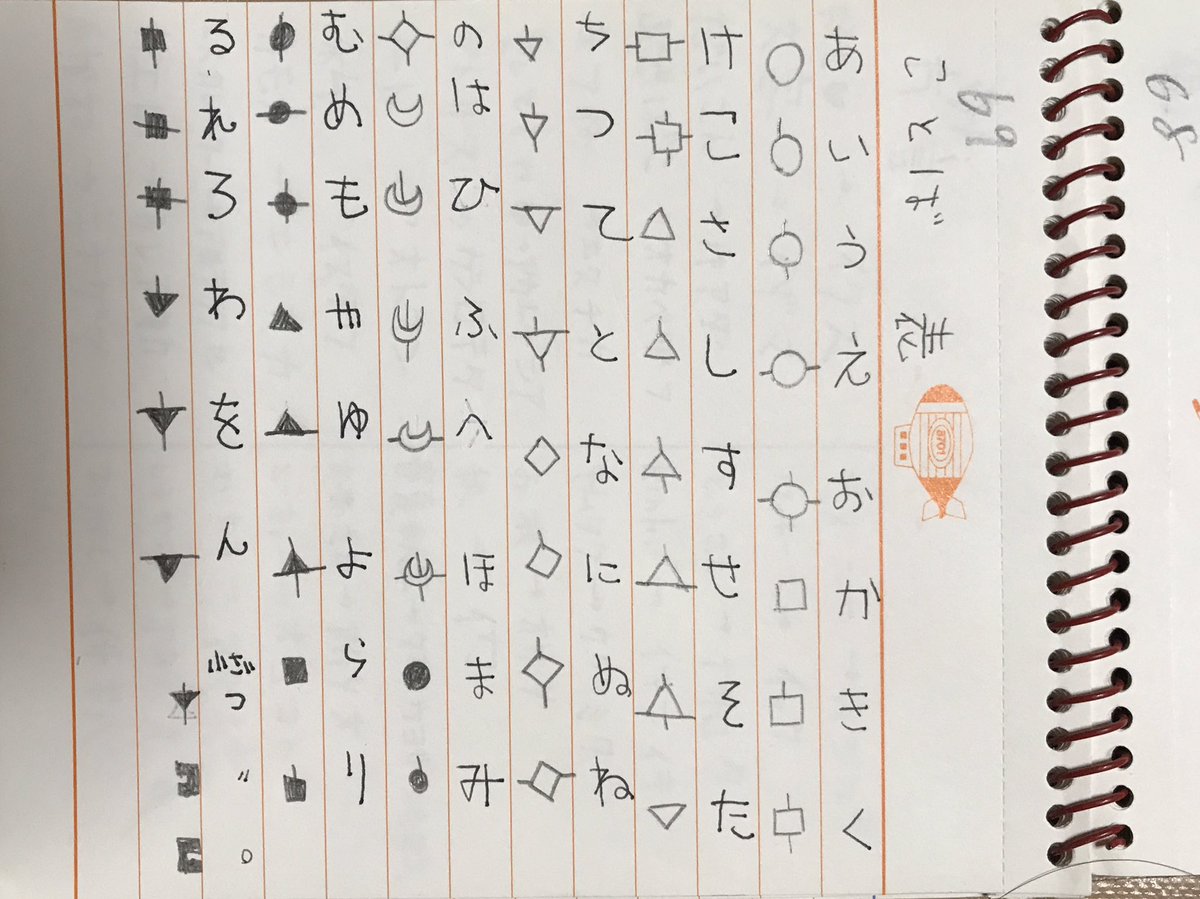 69
表
8701
あ い う え お か き く
け こ さ し す せ そ た
ち つ て と な に ぬ ね
の は ひ ふ へ ほ ま み
む め も や ゆ よ ら り
る れ ろ わ を ん 小さい つ ゛ ゜